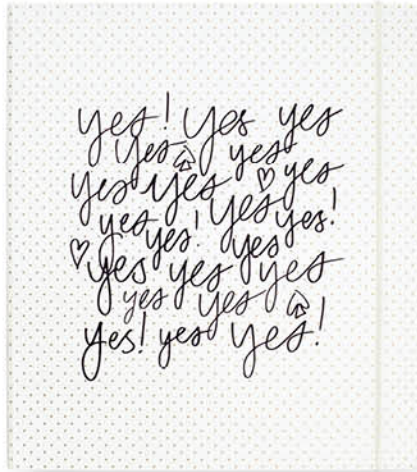 yes! yes yes
yes yes
yes yes yes
yes yes yes!
yes! yes
yes yes yes
yes yes
yes! yes yes!